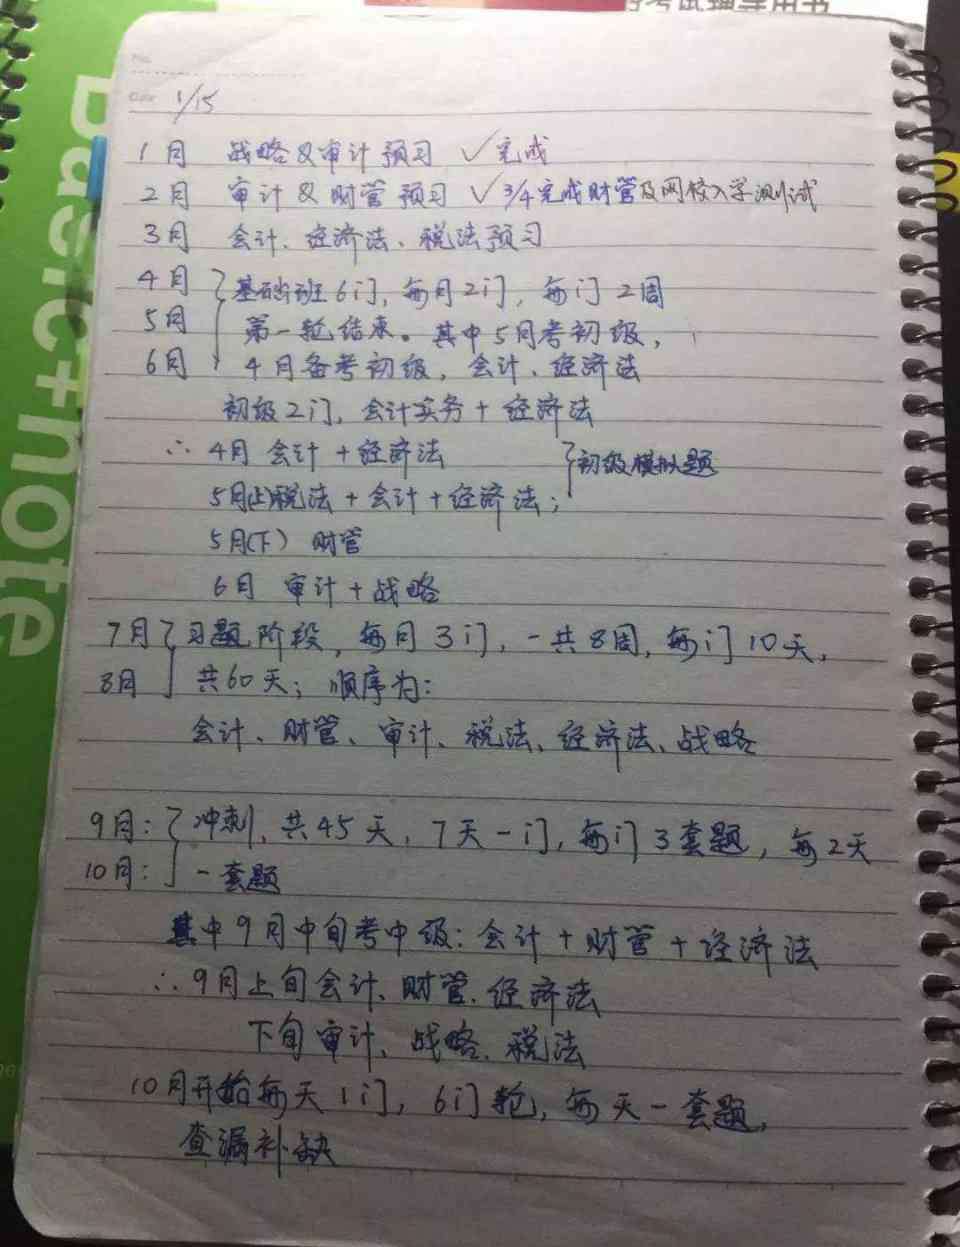 No.
Date 1/15
1月 战略&审计预习 ✓完成
2月 审计&财管预习 ✓3/4完成财管及网校入学测试
3月 会计、经济法、税法预习
4月 基础班6门,每月2门,每门2周
5月 第一轮结束。其中5月考初级,
6月 4月备考初级,会计、经济法
初级2门,会计实务+经济法
∴ 4月 会计+经济法
初级模拟题
5月(上)税法+会计+经济法;
5月(下) 财管
6月 审计+战略
7月 习题阶段,每月3门,一共8周,每门10天,
8月 共60天;顺序为:
会计、财管、审计、税法、经济法、战略
9月: 冲刺,共45天,7天一门,每门3套题,每2天
10月: 一套题
其中9月中旬考中级:会计+财管+经济法
∴ 9月上旬会计、财管、经济法
下旬审计、战略、税法
10月开始每天1门,6门轮,每天一套题,
查漏补缺
Basic+note